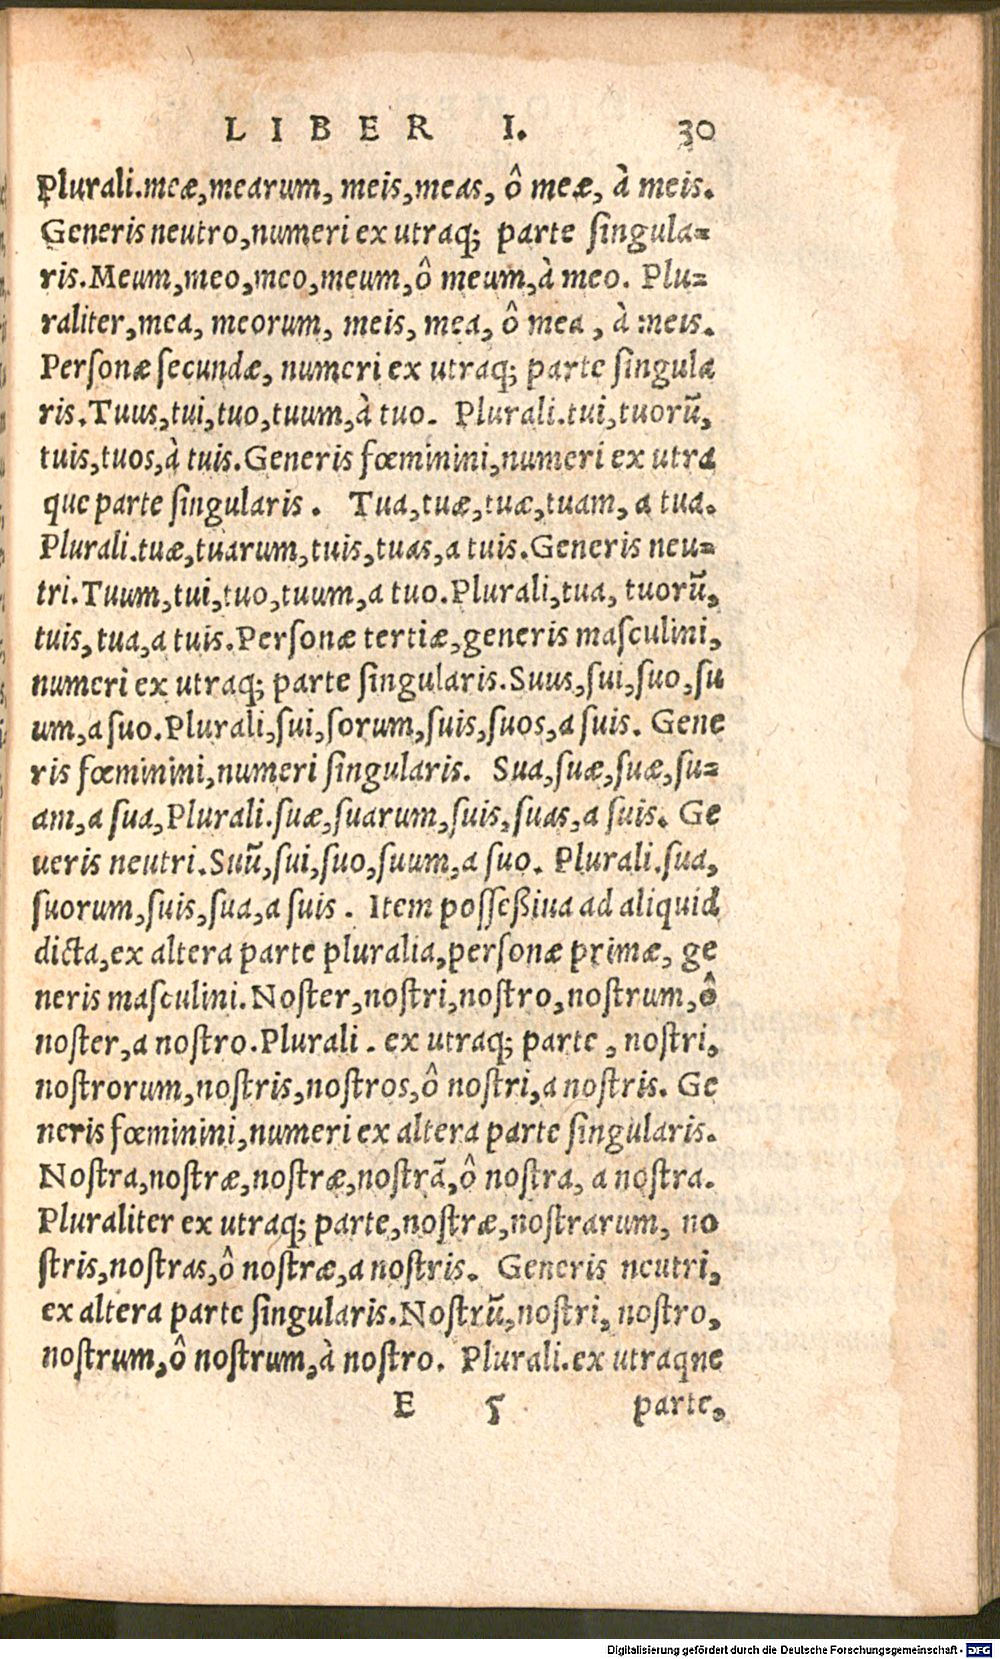 LIBER I. 30
Plurali.meæ,mearum, meis,meas, ô meæ, à meis.
Generis neutro,numeri ex utraq; parte ſingula=
ris.Meum,meo,meo,meum,ô meum,à meo. Plu=
raliter,mea, meorum, meis, mea, ô mea, à meis.
Perſonæ ſecundæ, numeri ex utraq; parte ſingula
ris.Tuus,tui,tuo,tuum,à tuo. Plurali.tui,tuorũ,
tuis,tuos,à tuis.Generis fœminini,numeri ex utra
que parte ſingularis. Tua,tuæ,tuæ,tuam, a tua.
Plurali.tuæ,tuarum,tuis,tuas,a tuis.Generis neu=
tri.Tuum,tui,tuo,tuum,a tuo.Plurali,tua, tuorũ,
tuis,tua,a tuis.Perſonæ tertiæ,generis maſculini,
numeri ex utraq; parte ſingularis.Suus,ſui,ſuo,ſu
um,a ſuo.Plurali,ſui,ſorum,ſuis,ſuos,a ſuis. Gene
ris fœminini,numeri ſingularis. Sua,ſuæ,ſuæ,ſu=
am,a ſua,Plurali.ſuæ,ſuarum,ſuis,ſuas,a ſuis. Ge
ueris neutri.Suũ,ſui,ſuo,ſuum,a ſuo. Plurali.ſua,
ſuorum,ſuis,ſua,a ſuis. Item poſſeßiua ad aliquid
dicta,ex altera parte pluralia,perſonæ primæ, ge
neris maſculini.Noſter,noſtri,noſtro,noſtrum,ô
noſter,a noſtro.Plurali. ex utraq; parte, noſtri,
noſtrorum,noſtris,noſtros,ô noſtri,a noſtris. Ge
neris fœminini,numeri ex altera parte ſingularis.
Noſtra,noſtræ,noſtræ,noſtrã,ô noſtra, a noſtra.
Pluraliter ex utraq; parte,noſtræ,noſtrarum, no
ſtris,noſtras,ô noſtræ,a noſtris. Generis neutri,
ex altera parte ſingularis.Noſtrũ,noſtri, noſtro,
noſtrum,ô noſtrum,à noſtro. Plurali.ex utraqne
E 5 parte,
Digitalisierung gefördert durch die Deutsche Forschungsgemeinschaft - DFG